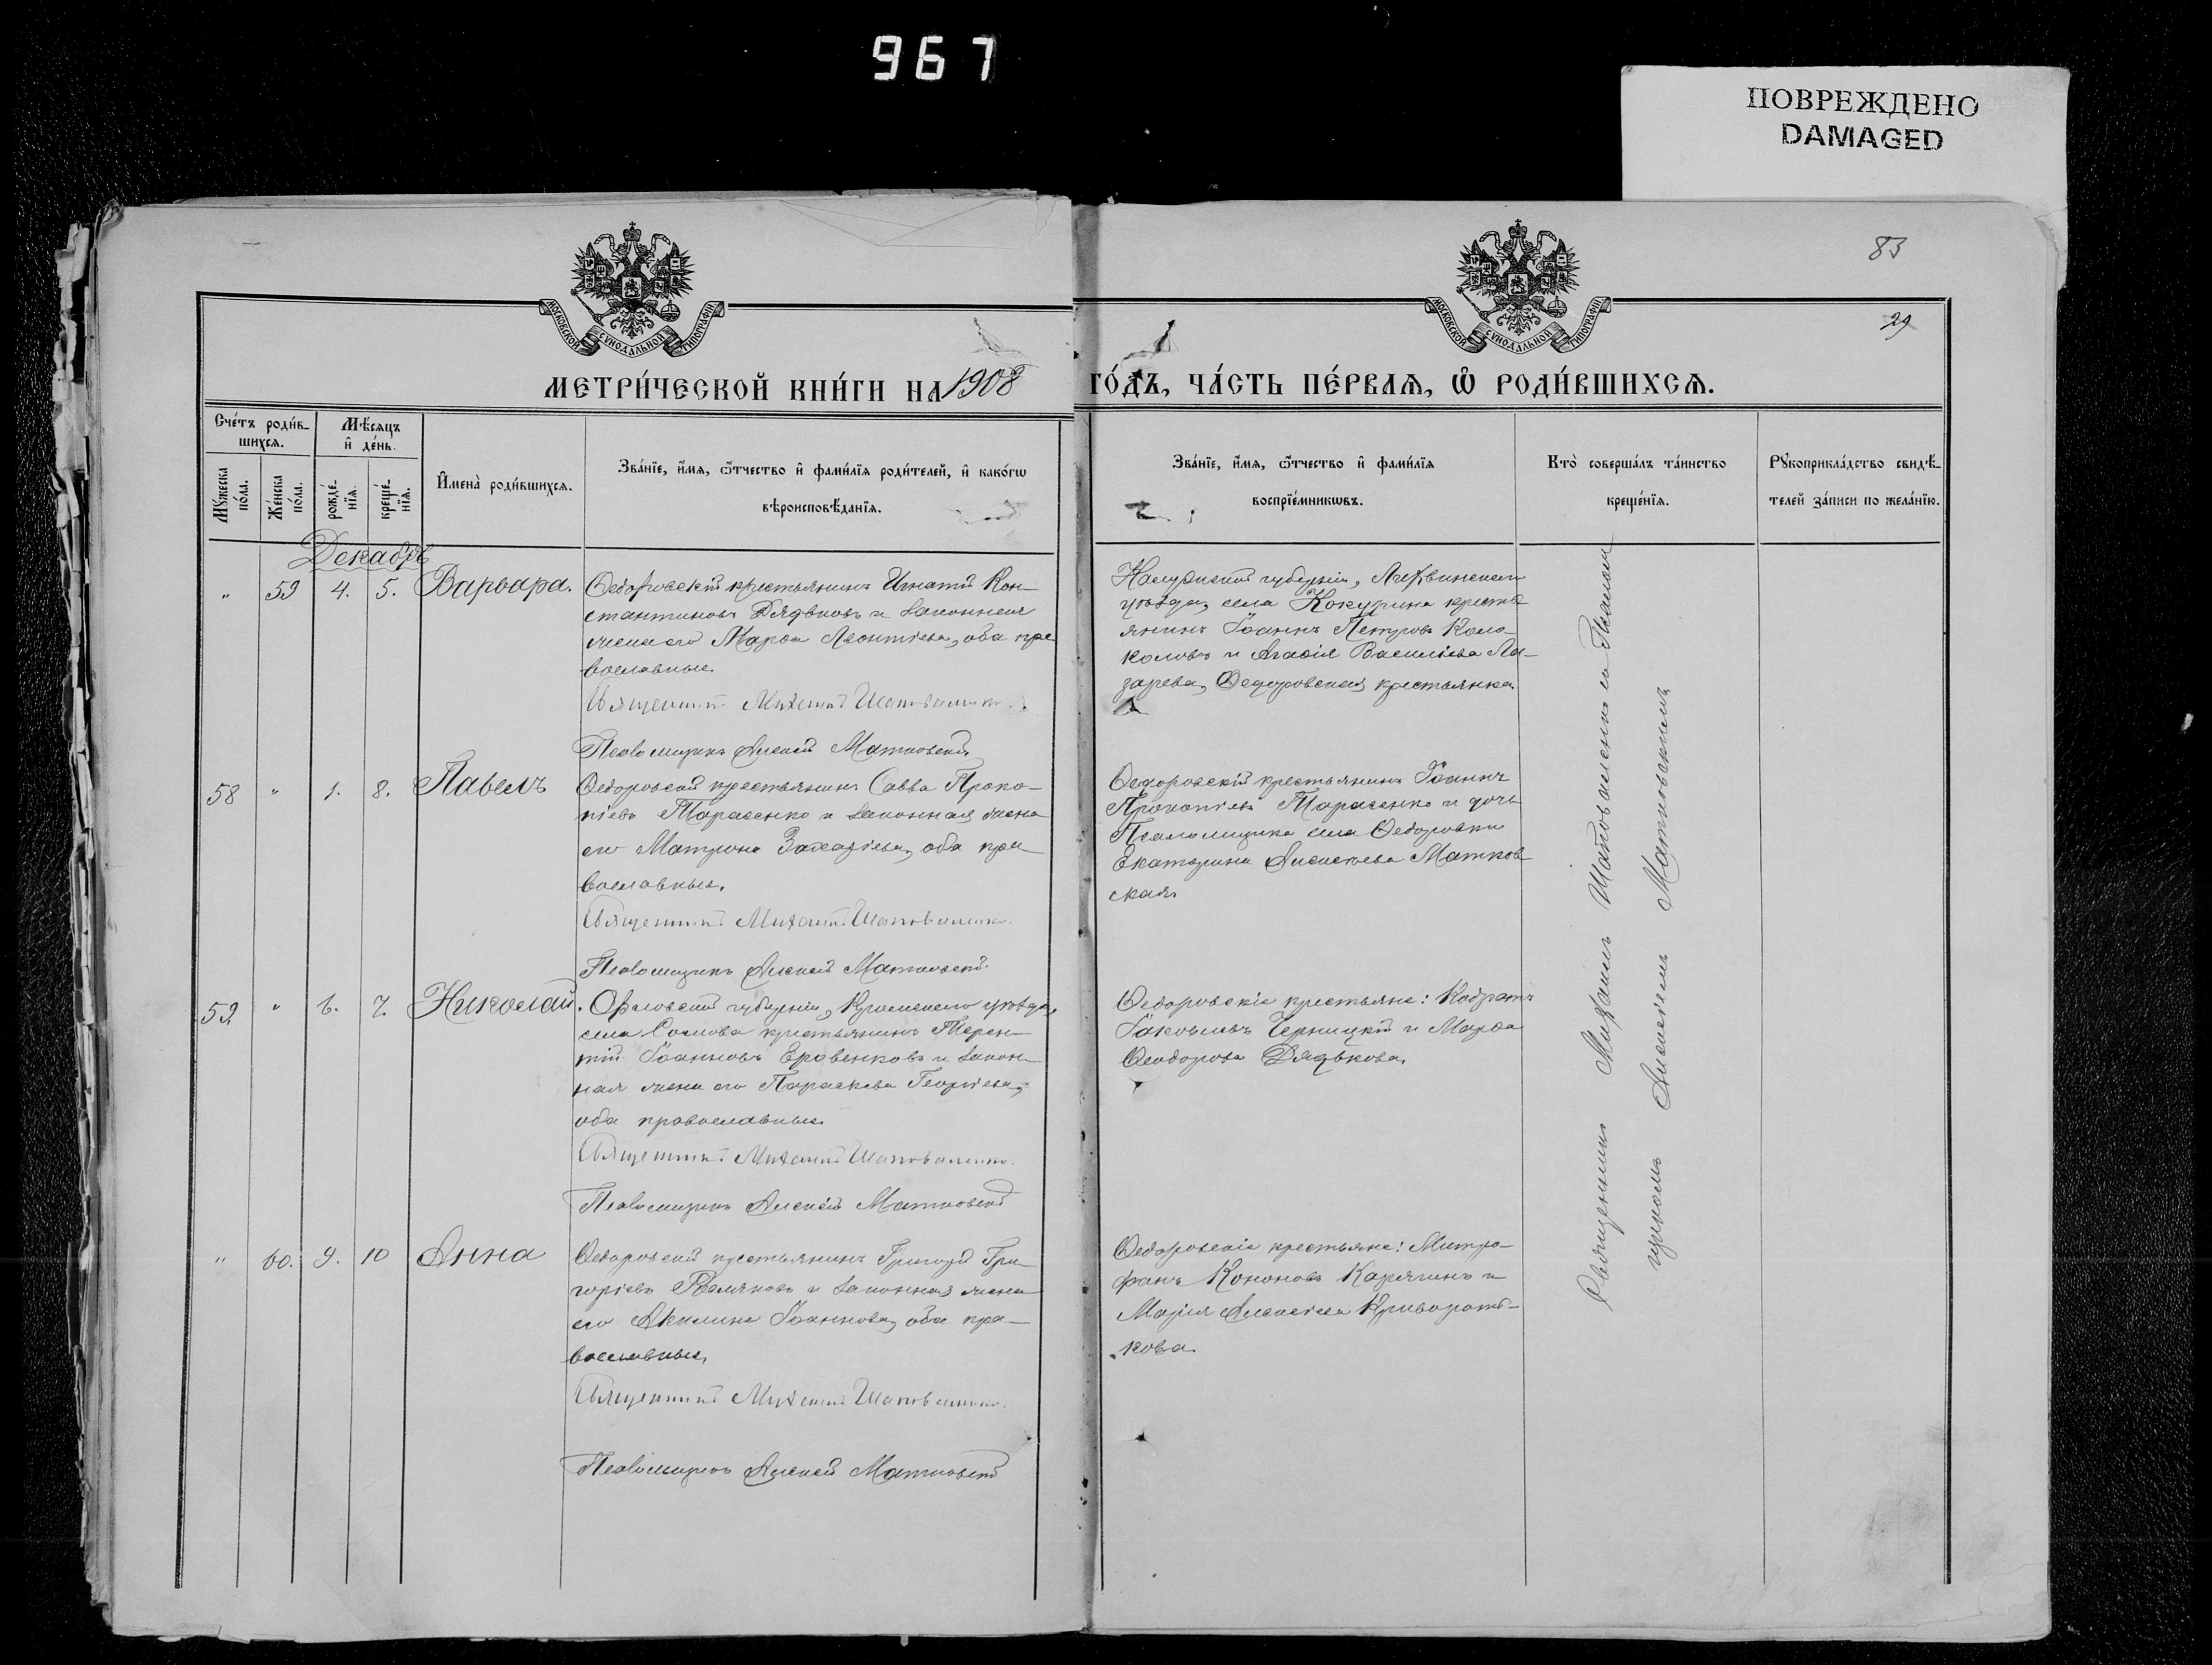 967
ПОВРЕЖДЕНО
DAMAGED
83
29
МОСКОВСКОЙ СѴНОДАЛЬНОЙ ТИПОГРАФІИ
МОСКОВСКОЙ СѴНОДАЛЬНОЙ ТИПОГРАФІИ
МЕТРИ́ЧЕСКОЙ КНИ́ГИ НА 1908 ГО́ДЪ, ЧА́СТЬ ПЕ́РВАѦ, Ѡ҆ РОДИ́ВШИХСѦ.
Сче́тъ роди́в-
шихсѧ.
Мѣ́сѧцъ
и҆ де́нь.
Мꙋ́жеска
по́ла.
Же́нска
по́ла.
рожде́-
нїѧ.
креще́-
нїѧ.
И҆мена̀ роди́вшихсѧ.
Зва́нїе, и҆́мѧ, ѻ҆́тчество и҆ фами́лїѧ роди́телей, и҆ како́гѡ
вѣроисповѣ́данїѧ.
Зва́нїе, и҆́мѧ, ѻ҆́тчество и҆ фами́лїѧ
воспрїе́мникѡвъ.
Кто̀ соверша́лъ та́инство
креще́нїѧ.
Рꙋкоприкла́дство свидѣ́-
телей за́писи по жела́нїю.
Декабрь
" 59 4. 5. Варвара.
Ѳедоровскій крестьянинъ Игнатій Кон-
стантиновъ Дядьковъ и законная
жена его Марѳа Леонтіева, оба пра
вославные.
Священникъ Михаилъ Шаповаленко.
Псаломщикъ Алексѣй Матковскій
Калужской губерніи, Лихвинскаго
уѣзда, села Кокурина кресть
янинъ Іоаннъ Петровъ Коло-
коловъ и Агаѳія Васильева Ла-
зарева, Ѳедоровская крестьянка.
58 " 1. 8. Павелъ
Ѳедоровскій крестьянинъ Савва Проко-
піевъ Тарасенко и законная жена
его Матрона Захаріева, оба пра
вославные.
Священникъ Михаилъ Шаповаленко.
Псаломщикъ Алексѣй Матковскій
Ѳедоровскій крестьянинъ Іоаннъ
Прокопіевъ Тарасенко и дочь
Псаломщика села Ѳедоровки
Екатерина Алексѣева Матков
ская.
59 " 6. 7. Николай.
Орловской губерніи, Кромскаго уѣзда,
села Сомова крестьянинъ Терен-
тій Іоанновъ Еровенковъ и закон-
ная жена его Параскева Георгіева,
оба православные.
Священникъ Михаилъ Шаповаленко.
Псаломщикъ Алексѣй Матковскій
Ѳедоровскіе крестьяне: Кодратъ
Іаковлевъ Черницкій и Марѳа
Ѳеодорова Дядькова.
" 60. 9. 10 Анна
Ѳедоровскій крестьянинъ Григорій Гри-
горіевъ и законная жена
его Акилина Іоаннова, оба пра-
вославные.
Священникъ Михаилъ Шаповаленко.
Псаломщикъ Алексѣй Матковскій
Ѳедоровскіе крестьяне: Митро-
фанъ Кононовъ Карягинъ и
Марія Алексѣева Криворот-
кова.
Священникъ Михаилъ Шаповаленко съ Псалом
щикомъ Алексѣемъ Матковскимъ